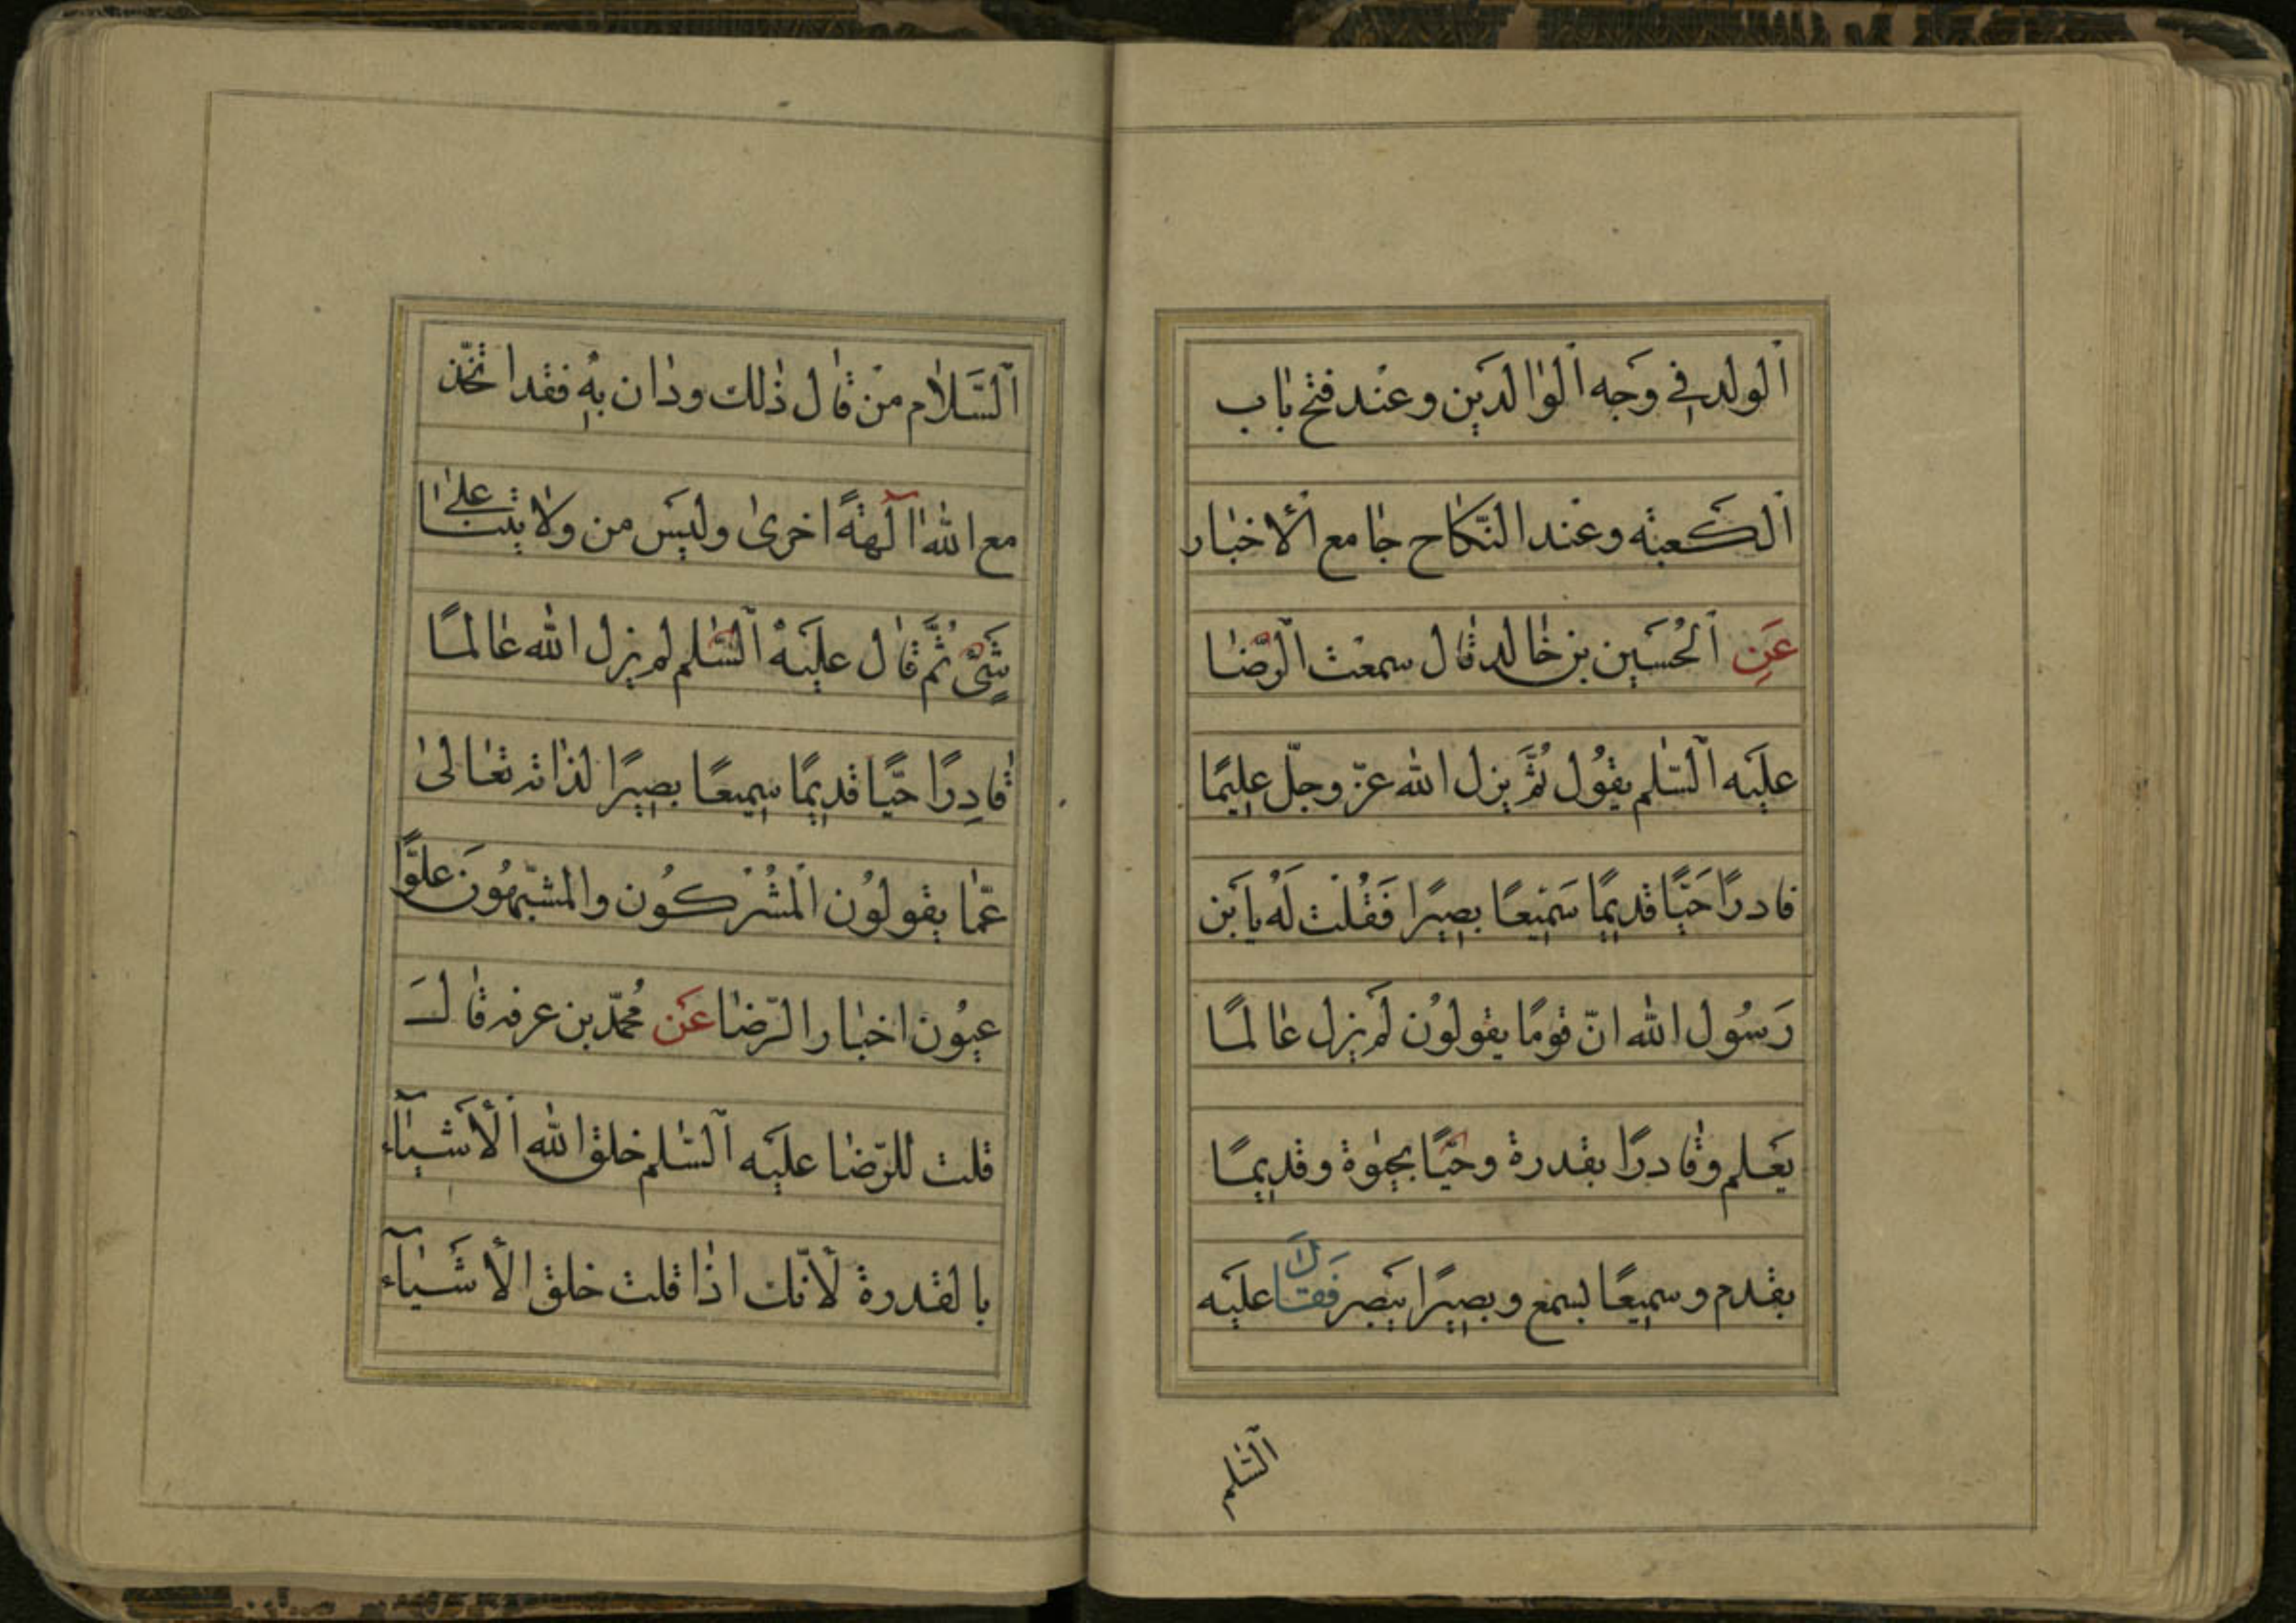 اَلولد في وَجه اَلوٰالدَين وعنْد فتح بٰاب
اَلكَعبة وعنْد النّكٰاح جٰامع اَلأخبٰار
عَنِ اَلحُسَين بن خٰالد قٰال سمعْت اَلرّضٰا
عليَه اَلسّٰلم يقوُل لُمَّ يزل الله عزّ وجلّ عليمًا
قادرًا حَيًّا قديمًا سَميعًا بصيرًا فَقُلْت لَهُ يا بَن
رَسُول الله انّ قومًا يقولوُن لَم يزل عٰالمًا
بعَلم وقٰادرًا بقدرة وحَيًّا بحيٰوة وقديمًا
بقدم وسميعًا بسمع وبصيرًا ببَصر فَقالَ عليَه
اَلسّٰلم
اَلسَّلاٰم منْ قٰال ذٰلك ودٰان بهِ فقد اتّخذ
مع الله اٰلهةً اخرىٰ وليَس من ولاٰيتنٰا علىٰ
شَيْءٍ ثُمَّ قٰال عليَهْ اَلسّٰلم لم يزل الله عٰالمًا
قٰادِرًا حَيًّا قديمًا سميعًا بصيرًا لذٰاته تعٰالىٰ
عمّٰا يقولوُن اَلمْشُرْكوُن والمشبّهوُنَ علوًّا
عيوُن اخبٰار الرّضٰا عَن مُحمّد بن عرفه قٰالَ
قلت للرّضٰا عليَه اَلسّٰلم خلق الله اَلأَشيٰآء
بالقدرة لأنّك اذٰا قلت خلق الأشَيٰآء